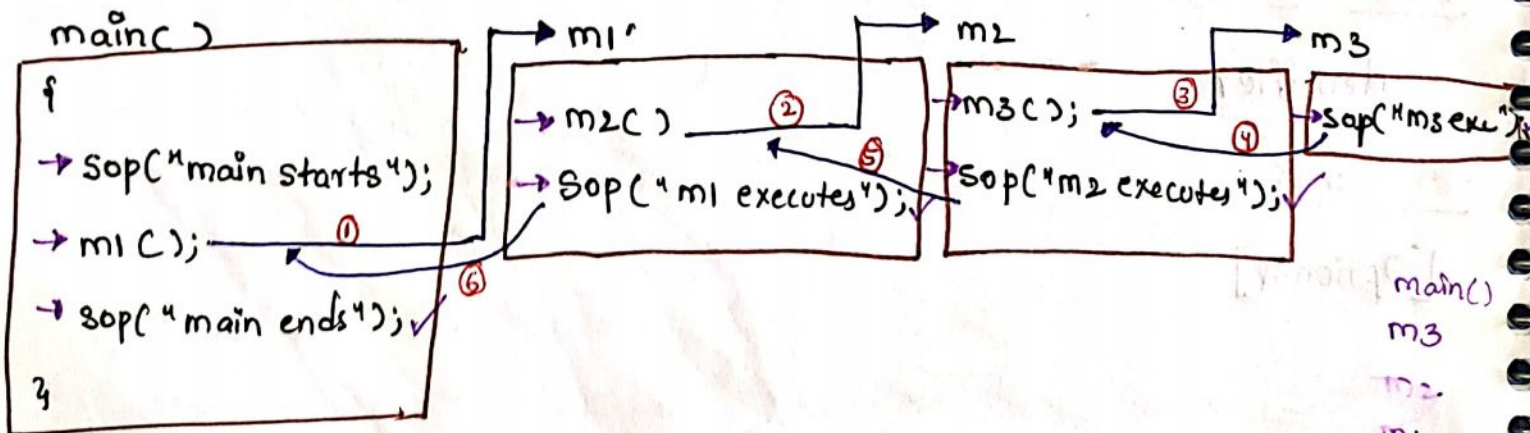 main()
{
sop("main starts");
m1();
sop("main ends");
}
①
⑥
m1
m2()
sop("m1 executes");
②
⑤
m2
m3();
sop("m2 executes");
③
④
m3
sop("m3 exe");
main()
m3
m2